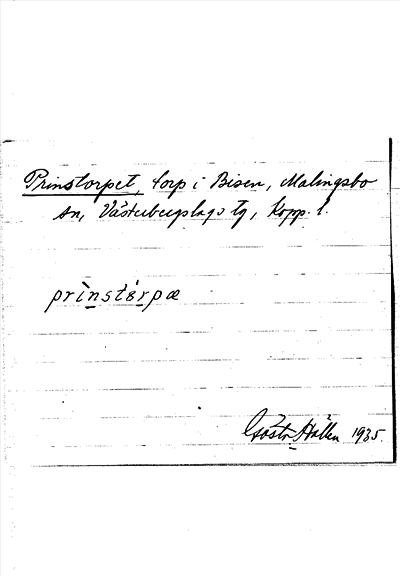 Prinstorpet, torp i Bisen, Malingsbo
sn, Västerbergslags tg, Kopp. l.
prìnstɵ́rpæ
Gösta Hallén 1935.